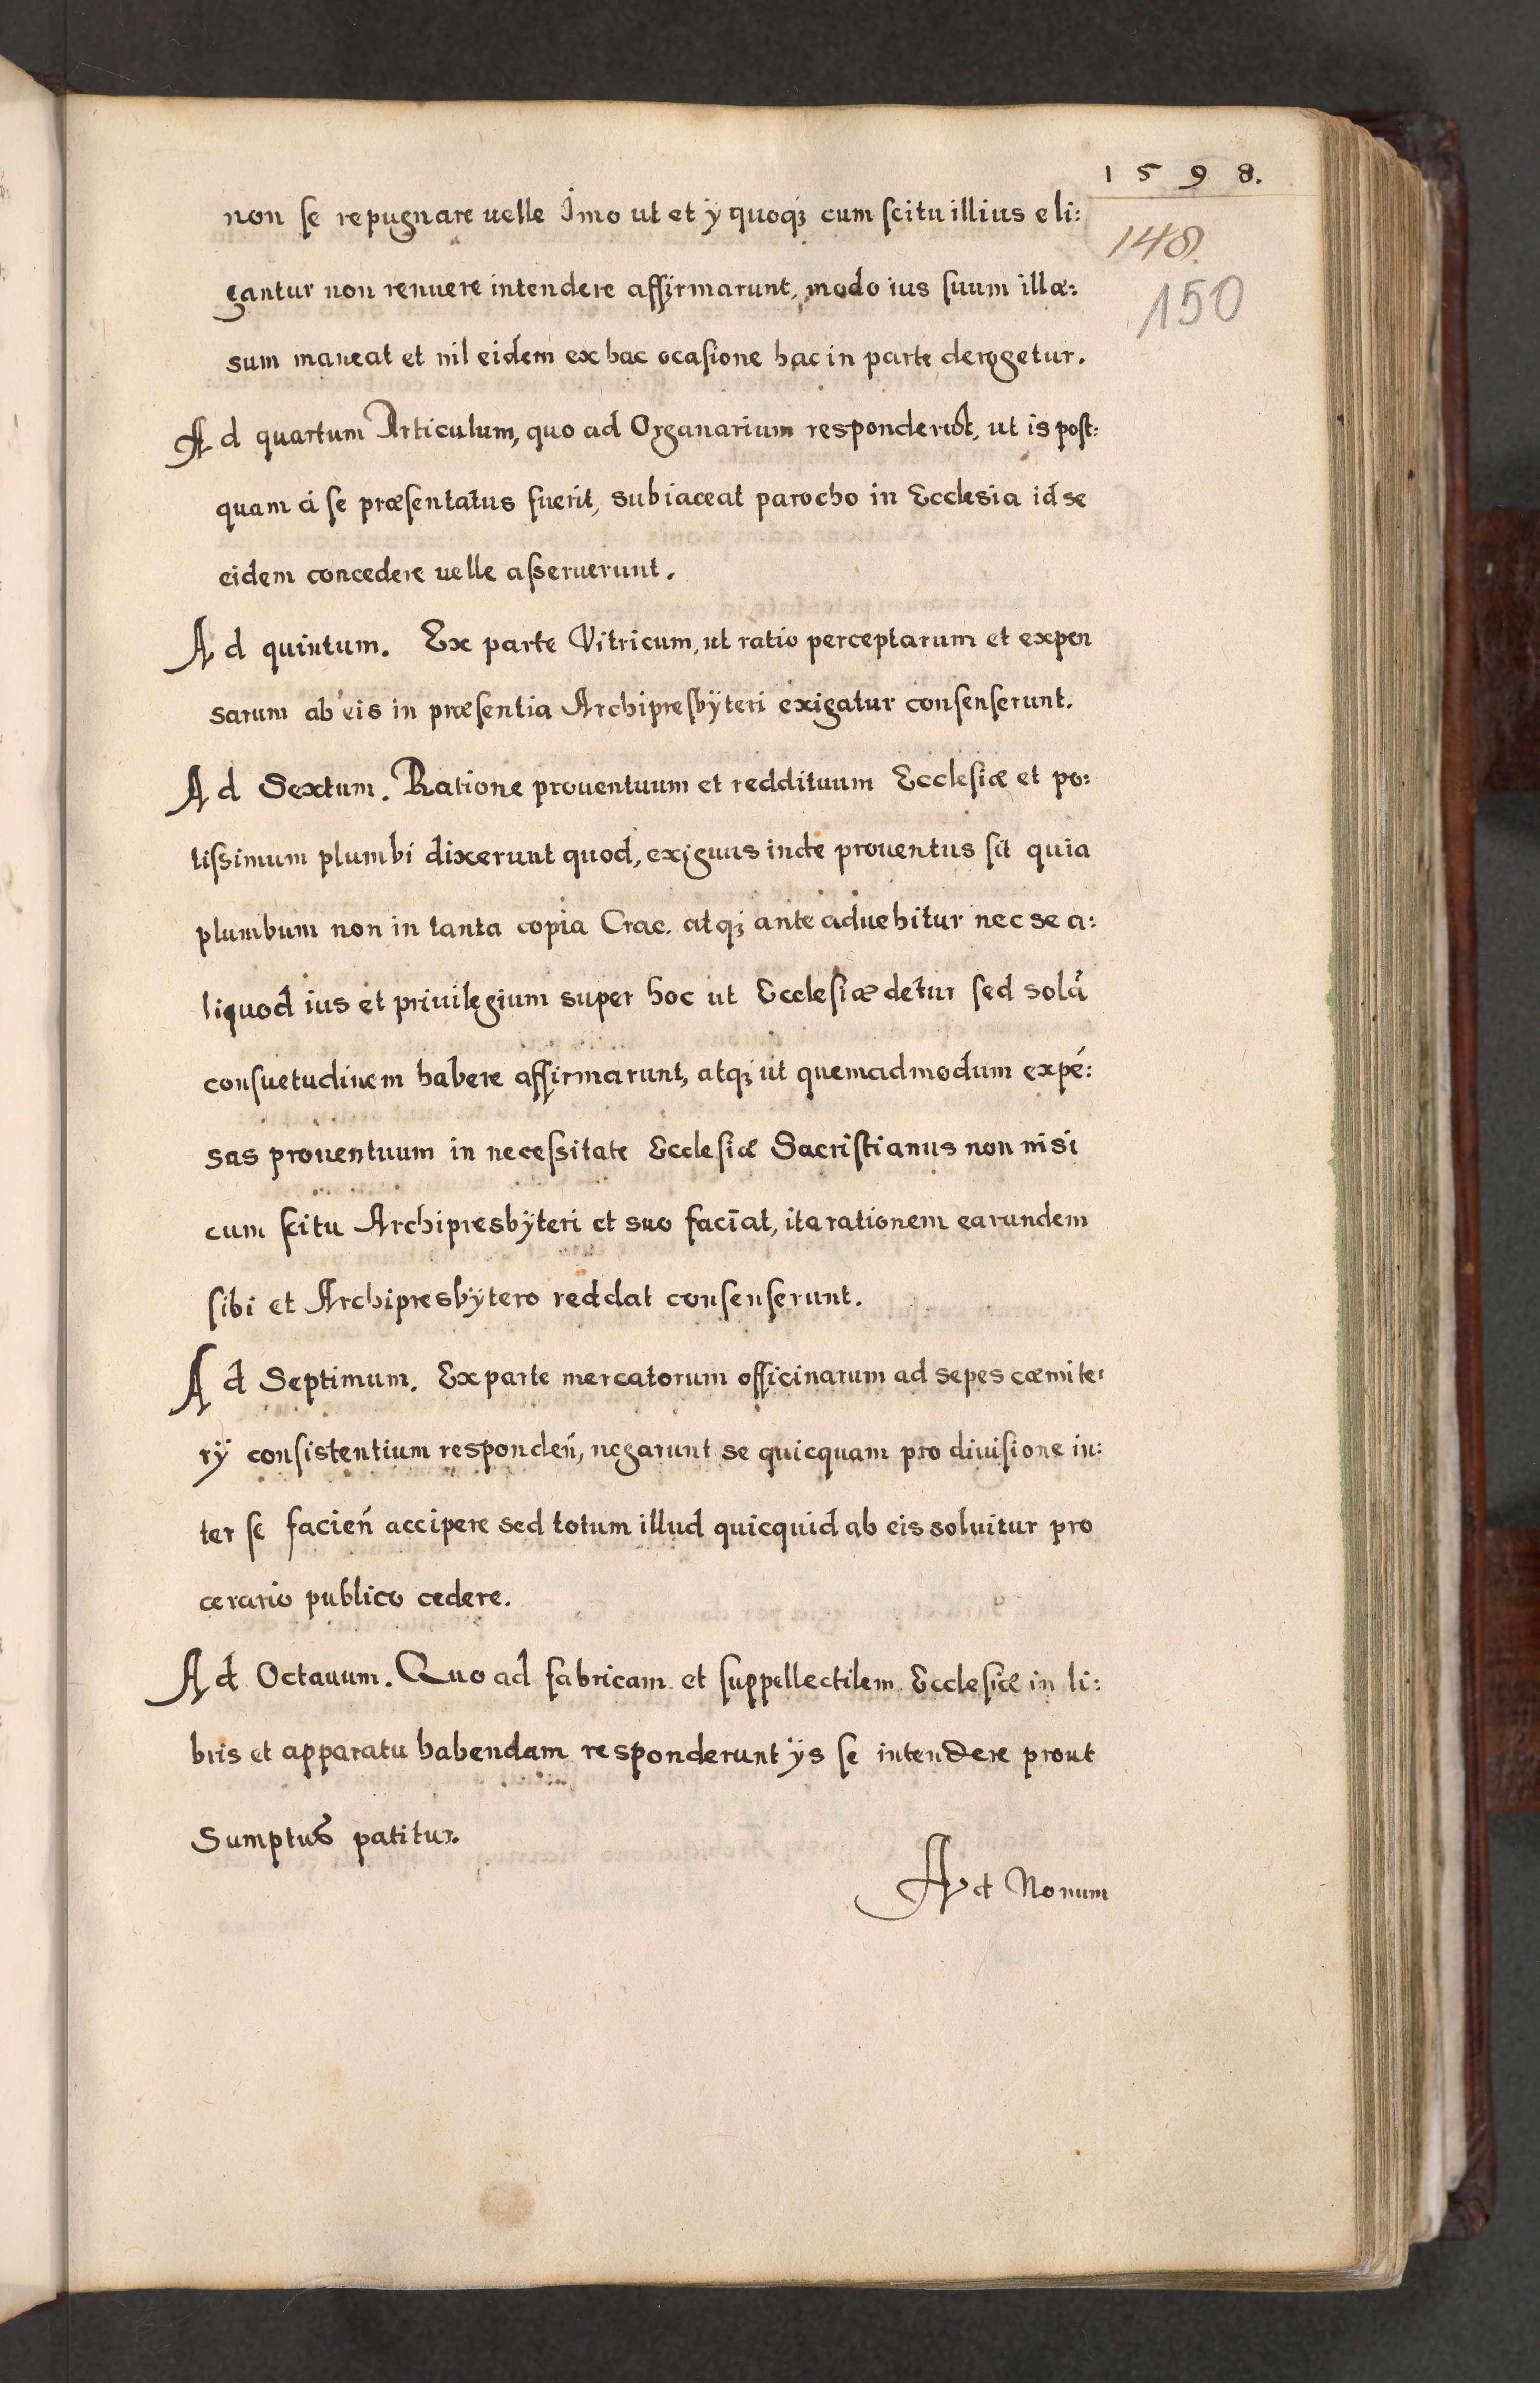 1598.
148.
150
non se repugnare uelle Imo ut et ÿ quoqꝫ cum scitu illius eli:
gantur non renuere intendere affirmarunt, modo ius suum illæ:
sum maneat et nil eidem ex hac ocasione hac in parte derogetur.
Ad quartum Articulum, quo ad Organarium responderūt, ut is post:
quam á se præsentatus fuerit, subiaceat parocho in Ecclesia id se
eidem concedere uelle asseruerunt.
Ad quintum. Ex parte Vitricum, ut ratio perceptarum et expen
sarum ab eis in præsentia Archipresbÿteri exigatur consenserunt.
Ad Sextum. Ratione prouentuum et reddituum Ecclesiæ et po:
tissimum plumbi dixerunt quod, exiguus inde prouentus sit quia
plumbum non in tanta copia Crac. atqꝫ ante aduehitur nec se a:
liquod ius et priuilegium super hoc ut Ecclesiæ detur sed solā
consuetudinem habere affirmarunt, atqꝫ ut quemadmodum expē:
sas prouentuum in necessitate Ecclesiæ Sacristianus non nisi
cum scitu Archipresbÿteri et suo faciat, ita rationem earundem
sibi et Archipresbÿtero reddat consenserunt.
Ad Septimum. Ex parte mercatorum officinarum ad sepes cæmite:
rÿ consistentium responden̄, negarunt se quicquam pro diuisione in:
ter se facien̄ accipere sed totum illud quicquid ab eis soluitur pro
ærario publico cedere.
Ad Octauum. Quo ad fabricam et suppellectilem Ecclesiæ in li:
bris et apparatu habendam responderunt ÿs se intendere prout
Sumptus patitur.
Ad Nonum